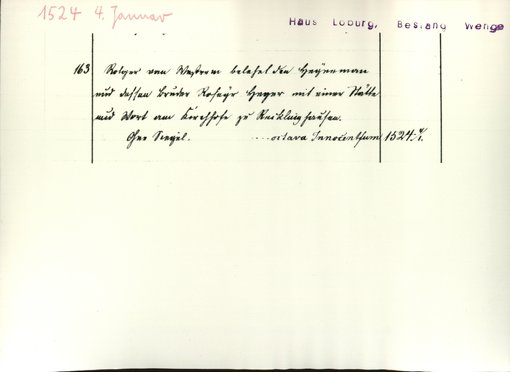 1524 4. Januar
Haus Loburg, Bestand Wenge
163 Rotger van Westrem belehnt den Hegeman
und dessen Bruder Heger mit einer Stätte
und Wort am Kirchhofe zu Recklinghausen.
Ohne Siegel. octava Innocentium 1524